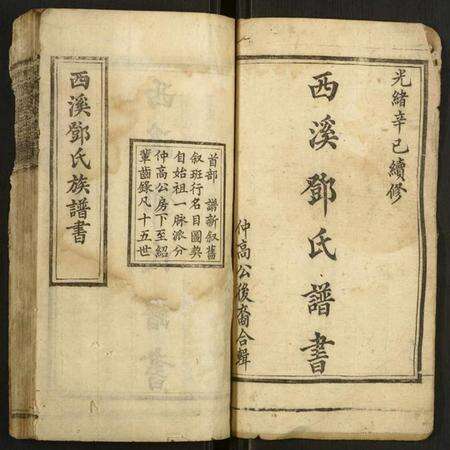 光緒辛巳續修
西溪鄧氏譜書
仲高公後裔合輯
首部 譜新叙舊
叙班行名目圖契
自始祖一脉派分
仲高公房下至紹
輩齒錄凡十五世
西溪鄧氏族譜書